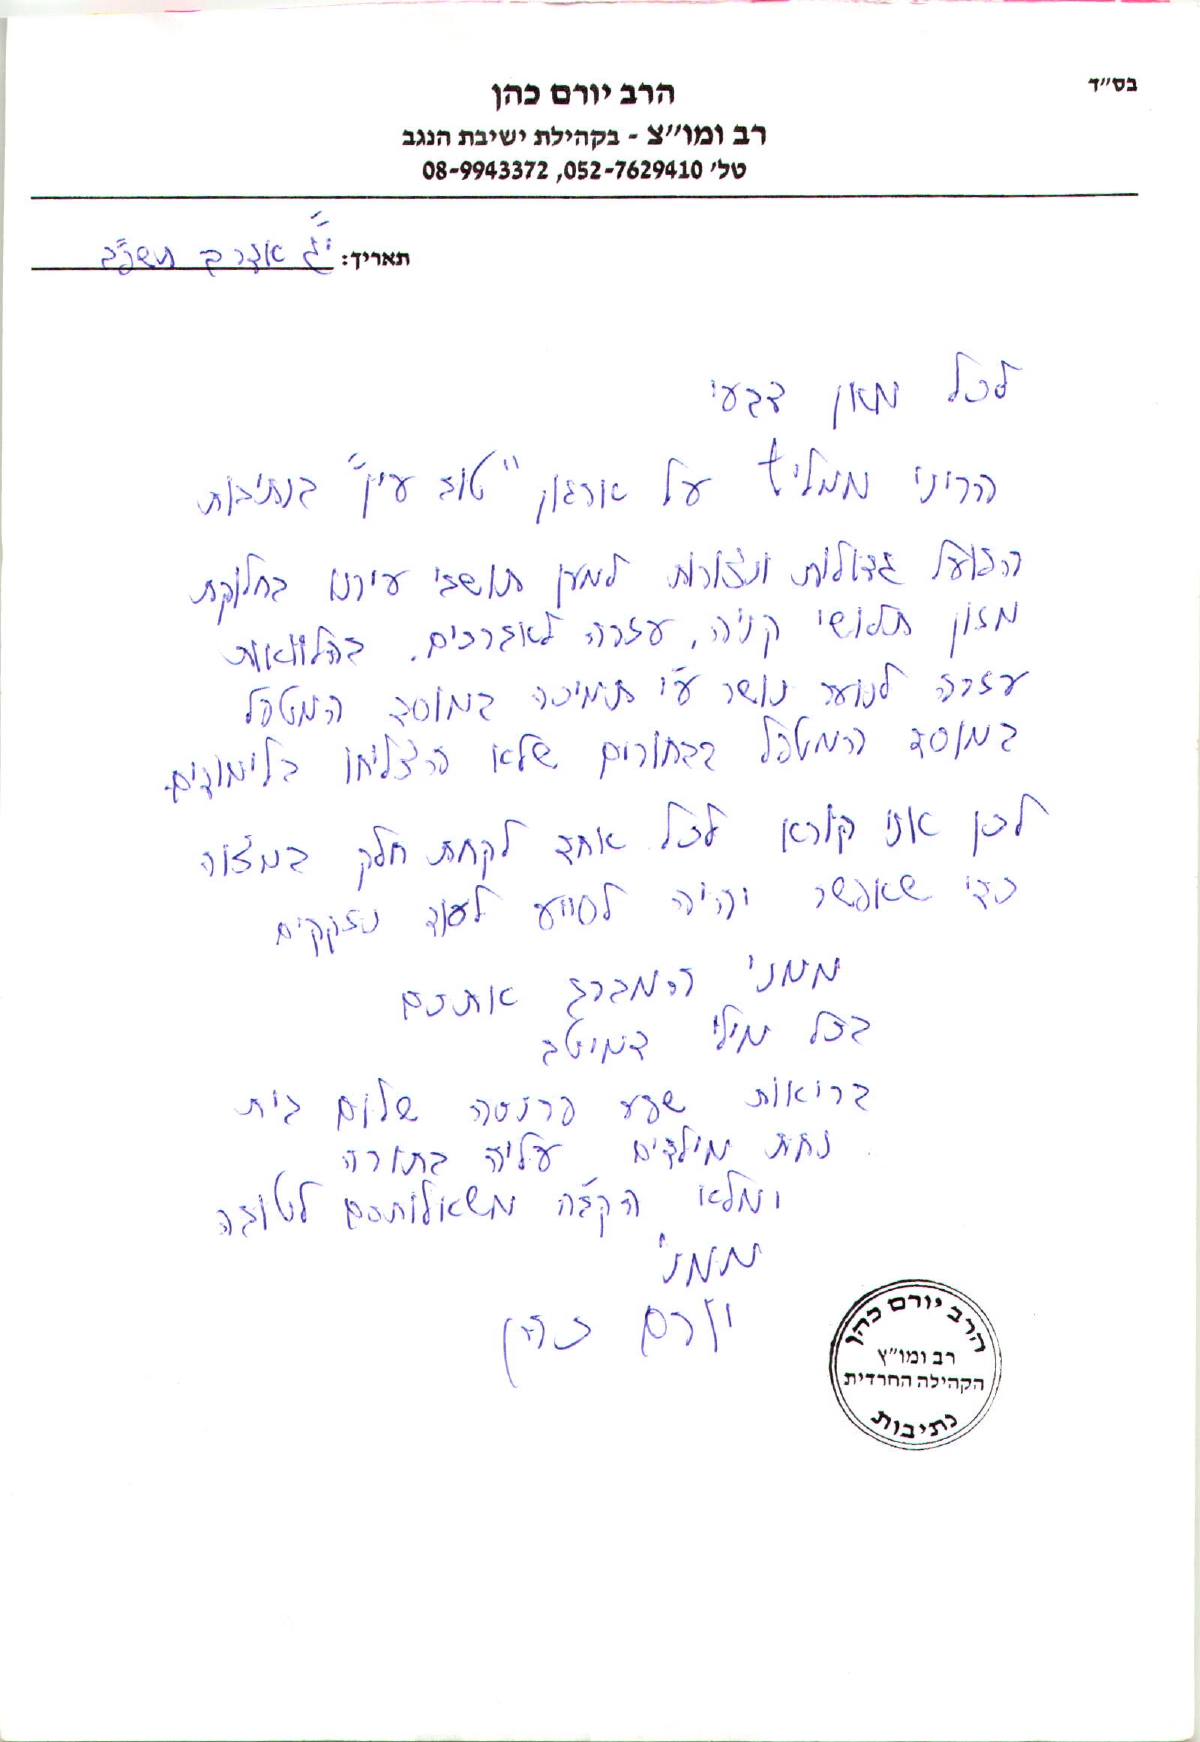 בס״ד
הרב יורם כהן
רב ומו״צ - בקהילת ישיבת הנגב
טל׳ 052-7629410, 08-9943372
תאריך: י״ג אדר ב תשפ״ב
לכל מאן דבעי
הריני ממליץ על ארגון "טוב עין" בנתיבות
הפועל גדולות ונצורות למען תושבי עירנו בחלוקת
מזון תלושי קניה, עזרה לאברכים. בהלוואות
עזרה לנוער נושר ע״י תמיכה במוסד המטפל
במוסד המטפל בבחורים שלא הצליחו בלימודים.
לכן אני קורא לכל אחד לקחת חלק במצוה
כדי שאפשר יהיה לסייע לעוד נזקקים
ממני המברך אתכם
בכל מילי דמיטב
בריאות שפע פרנסה שלום בית
נחת מילדים עליה בתורה
ומלא הקב״ה משאלותכם לטובה
ממני
יורם כהן
הרב יורם כהן
רב ומו״ץ
הקהילה החרדית
נתיבות